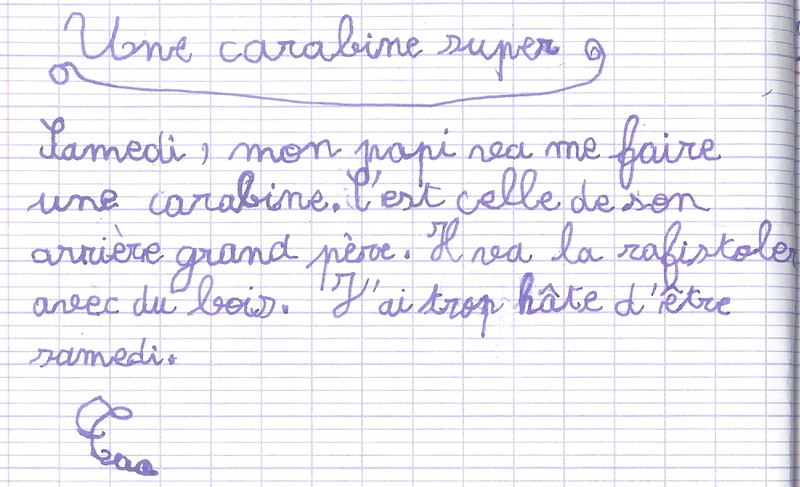 Une carabine super
Samedi, mon papi va me faire
une carabine. C'est celle de son
arrière grand père. Il va la rafistoler
avec du bois. J'ai trop hâte d'être
samedi.